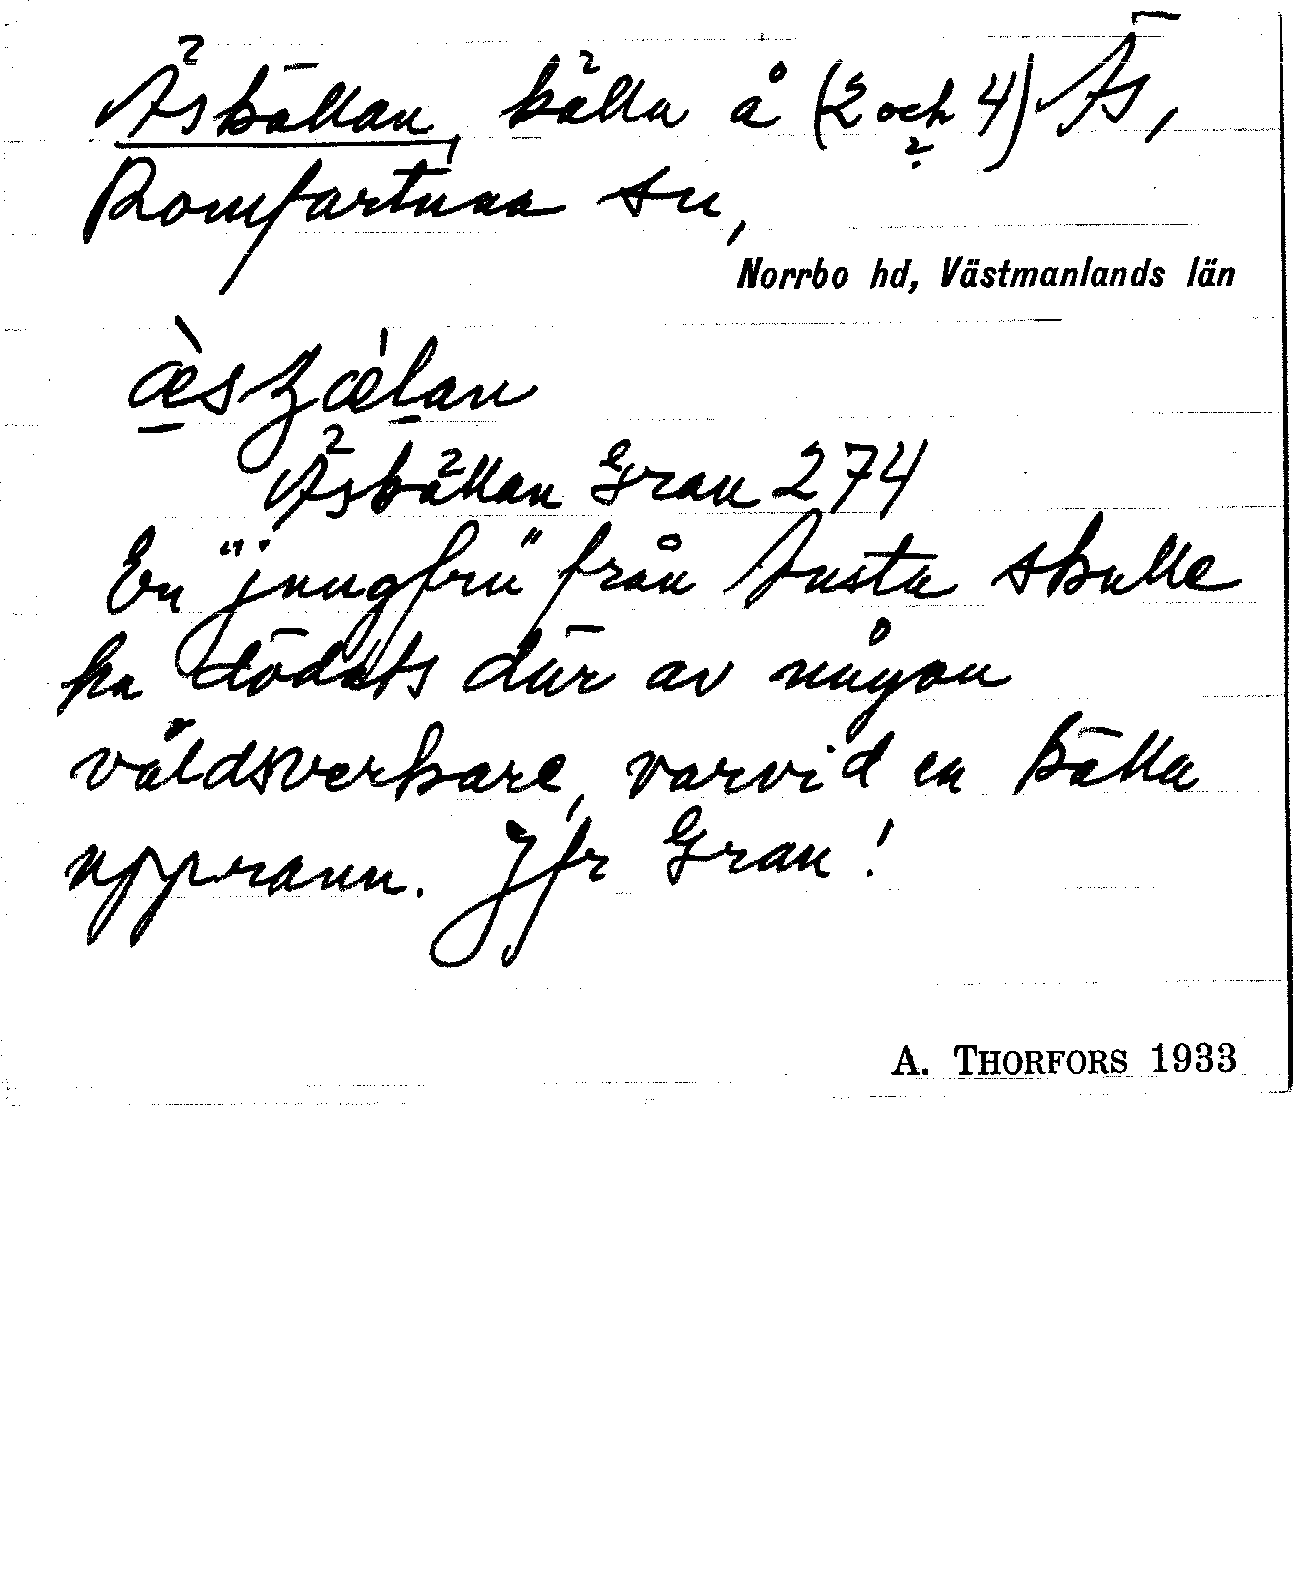 Äskällan, källa å (2 och 4) Äs,
Romfartuna sn,
Norrbo hd, Västmanlands län
Äskällan Gran 274
En "jungfru" från Tusta skulle
ha dödats där av någon
våldsverkare, varvid en källa
upprann. Jfr Gran!
A. THORFORS 1933